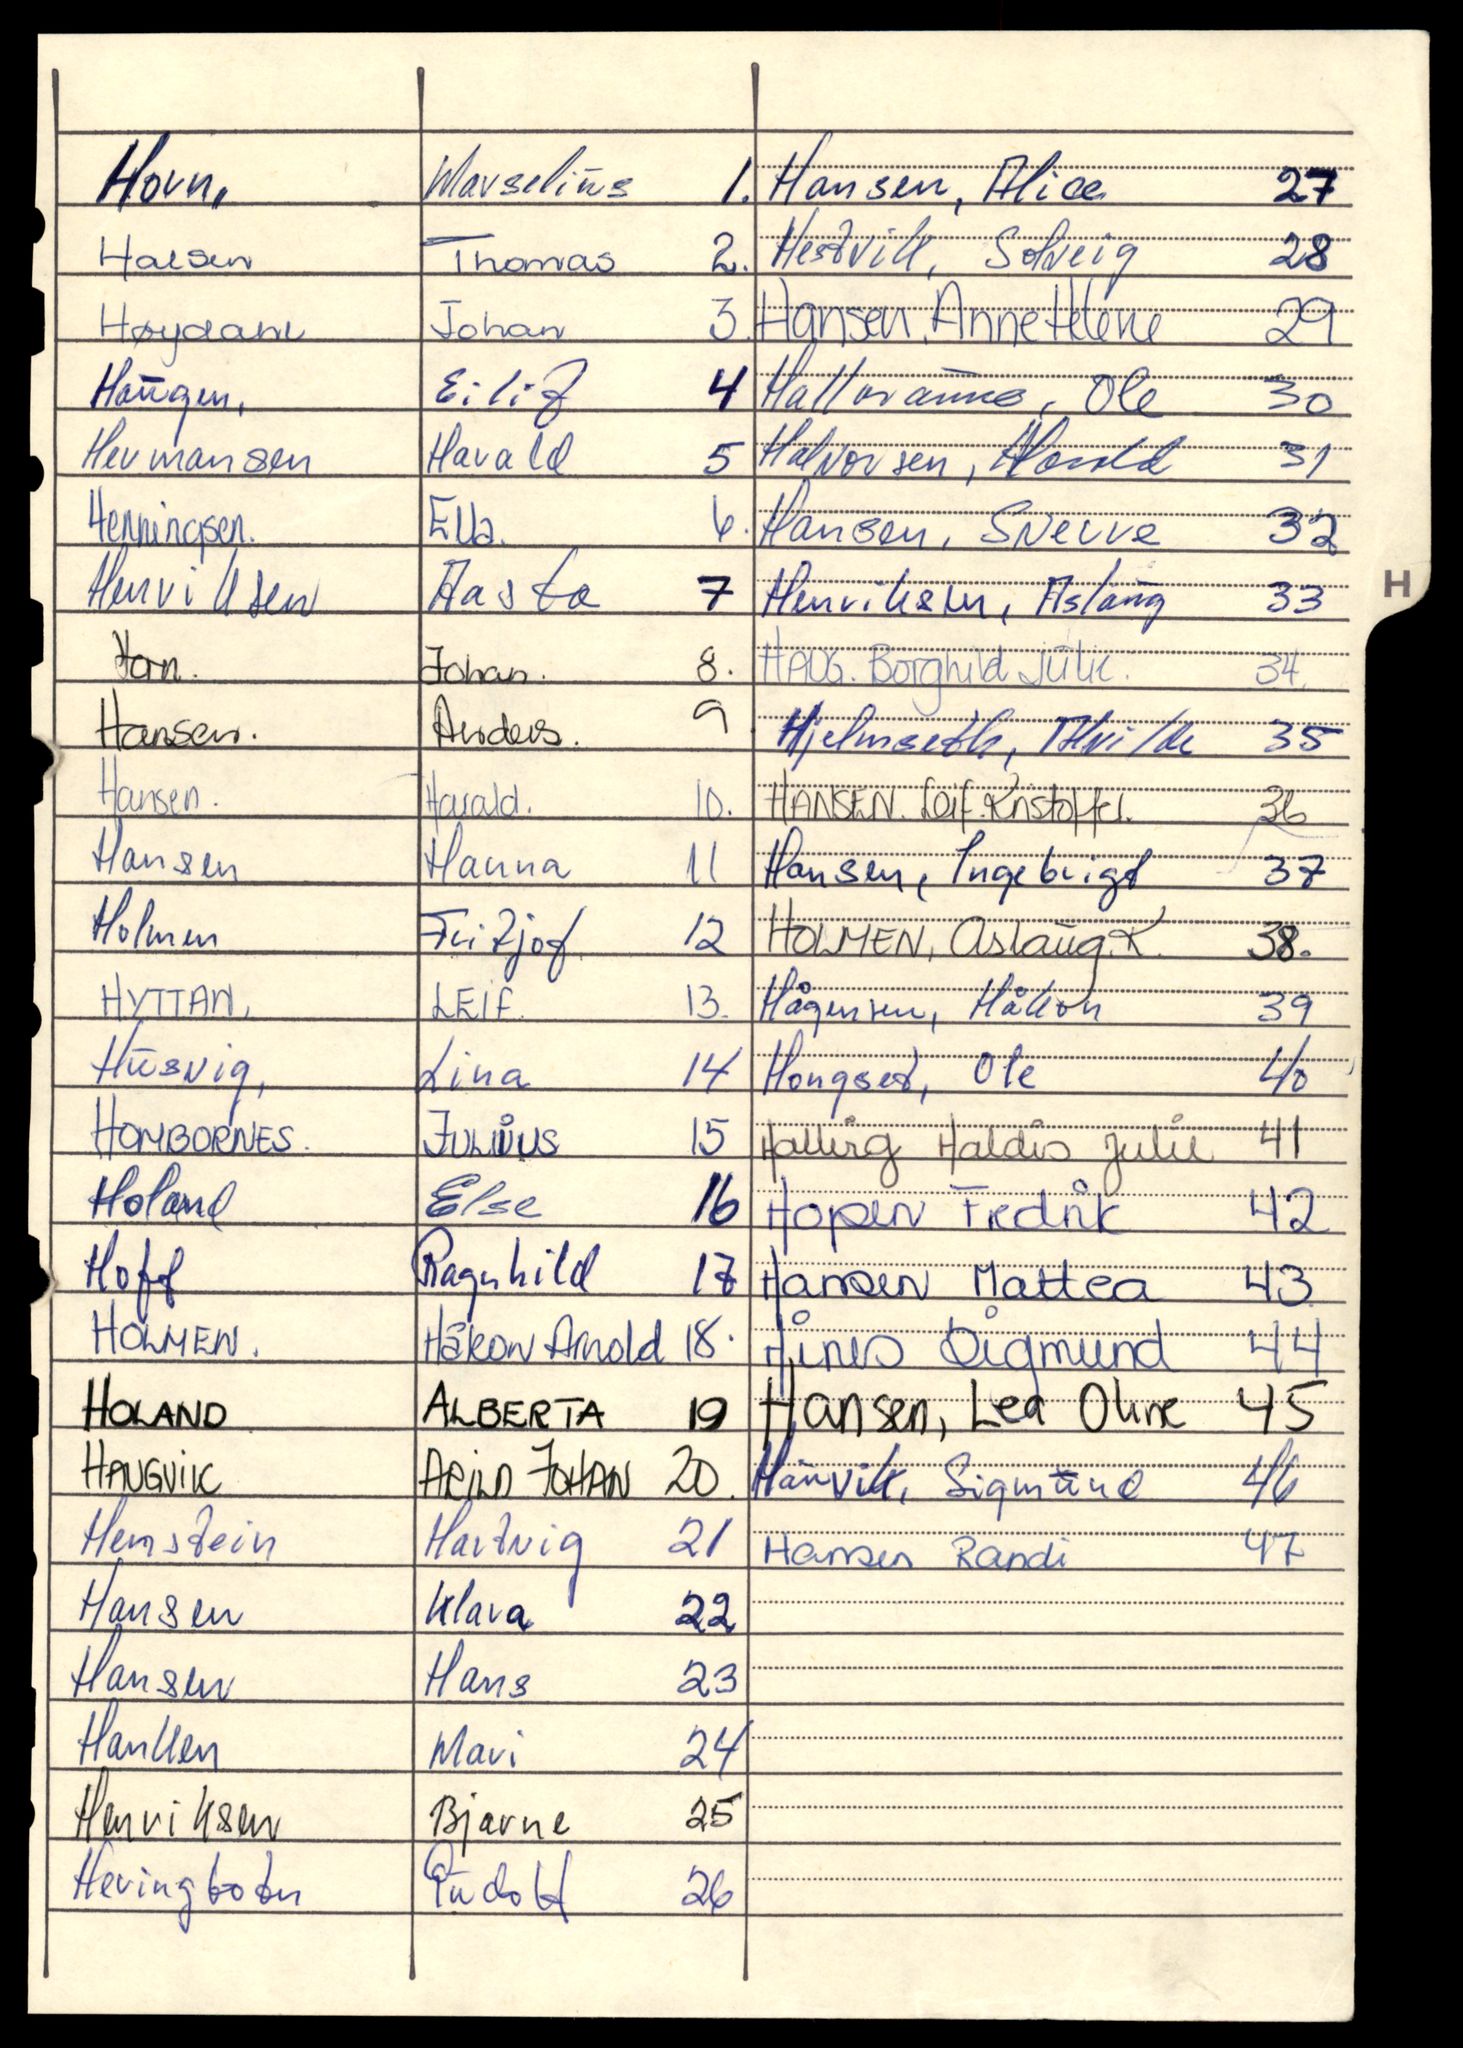 Horn, Marselius 1. Hansen, Alice 27
Halsen Thomas 2. Hestvik, Solveig 28
Høydahl Johan 3. Hansen. Anne Helene 29
Haugen, Eilif 4 Ole 30
Hermansen Harald 5 Halvorsen, Harald 31
Henningsen. Ella. 6. Hansen, Sverre 32
Henriksen Aasta 7 Henriksen, Aslaug 33
Horn. Johan. 8. HAUG. Borghild Julie. 34.
Hansen. Anders. 9 Hjelmseth, Alvilde 35
Hansen. Harald. 10. HANSEN. Leif. Kristoffer. 36
Hansen Hanna 11 Hansen, Ingebrigt 37
Holmen Fritjof 12 HOLMEN, Aslaug. K. 38.
HYTTAN, LEIF. 13. Hågensen, Håkon 39
Husvig, Lina 14 Hongset, Ole 40
HOMBORNES. JULIUS 15 Halling Haldis Julie 41
Holand Else 16 Hopen Fredrik 42
Hoff Ragnhild 17 Hansen Mattea 43
HOLMEN. Håkon Arnold 18. Hånes Sigmund 44
HOLAND ALBERTA 19 Hansen, Lea Oline 45
HAUGVIK ARILD JOHAN 20. Hauvik, Sigmund 46
Hemstein Hartvig 21 Hansen Randi 47
Hansen Klara 22
Hansen Hans 23
Hankken Mari 24
Henriksen Bjarne 25
Heringbotn Rudolf 26
H